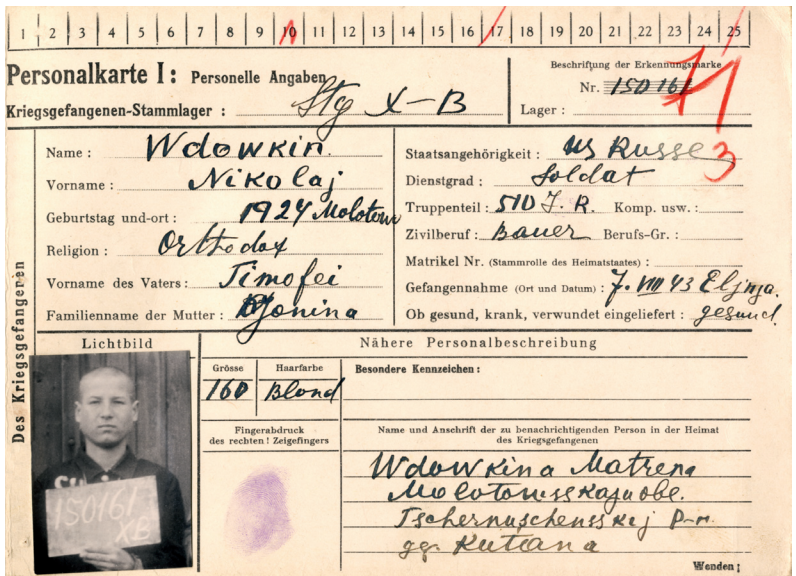 1 2 3 4 5 6 7 8 9 10 11 12 13 14 15 16 17 18 19 20 21 22 23 24 25
Personalkarte I: Personelle Angaben
Kriegsgefangenen-Stammlager: Stg X-B
Beschriftung der Erkennungsmarke
Nr. 150161
Lager:
Des Kriegsgefangenen
Name: Wdowkin
Vorname: Nikolaj
Geburtstag und -ort: 1924 Molotow
Religion: Orthodox
Vorname des Vaters: Timofei
Familienname der Mutter:
Staatsangehörigkeit: Russe
Dienstgrad: Soldat
Truppenteil: 510 J.R. Komp. usw.:
Zivilberuf: Bauer Berufs-Gr.:
Matrikel Nr. (Stammrolle des Heimatstaates):
Gefangennahme (Ort und Datum): 7. VIII 43 Eljnja.
Ob gesund, krank, verwundet eingeliefert: gesund.
Lichtbild
150161
XB
Nähere Personalbeschreibung
Grösse
160
Haarfarbe
Blond
Besondere Kennzeichen:
Fingerabdruck
des rechten! Zeigefingers
Name und Anschrift der zu benachrichtigenden Person in der Heimat
des Kriegsgefangenen
Wdowkina Matrena
Molotowsskaja obl.
Tschernuschensskij P-n.
Kutana
Wenden!